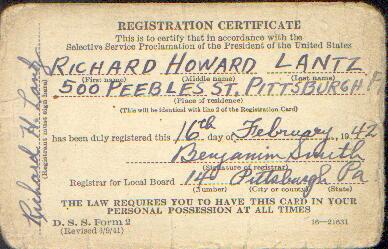 REGISTRATION CERTIFICATE
This is to certify that in accordance with the
Selective Service Proclamation of the President of the United States
RICHARD HOWARD LANTZ
(First name) (Middle name) (Last name)
500 PEEBLES ST, PITTSBURGH
(Place of residence)
(This will be identical with line 2 of the Registration Card)
has been duly registered this 16th day of February, 1942
Benjamin Smith
(Signature of registrar)
Registrar for Local Board 14 Pittsburgh Pa
(Number) (City or county) (State)
THE LAW REQUIRES YOU TO HAVE THIS CARD IN YOUR
PERSONAL POSSESSION AT ALL TIMES
D. S. S. Form 2
(Revised 6/9/41) 16—21631
Richard H. Lantz
(Registrant must sign here)